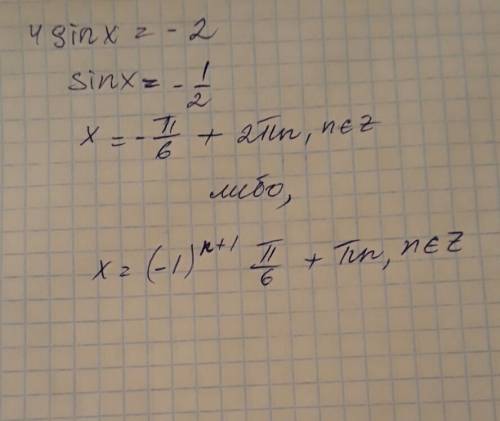 4 sinx = - 2
sinx = - 1/2
x = - π/6 + 2πn, n∈Z
либо,
x = (-1)^(n+1) π/6 + πn, n∈Z